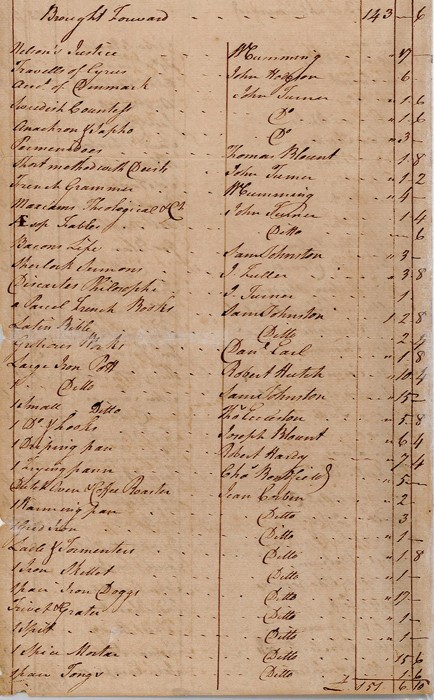 Brought Forward 143 - 6
Nelson's Justice Wm Cumming " 17 -
Travells of Cyrus John Hodgson " 6 -
Acct. of Denmark John Turner " 1 6
Swedish Countess Do " 1 6
Anachron & Sapho Do " 3 -
Thomas Blount " 1 8
Short method with Deists John Turner " 1 2
French Grammer Wm Cumming " 4 -
Maxims Theological &c John Turner 1 4
Æsop Fables Ditto - 6
Bacons Life Saml Johnston " 3 -
Sherlock Sermons J. " 3 8
Discartes Philosophi J. Turner " 1
a Parcel French Books Saml Johnston 1 2 8
Latin Bible Ditto " 2 4
Works Danl Earl " 1 8
Large Iron Pott Robert " 10 4
1 Do. Ditto Saml Johnston " 15 -
1 Small Ditto " 5 8
1 Do. & hooks Joseph Blount " 6 4
1 Driping pan Robert Hardy " 7 4
1 Frying pann Chas " 5 -
Oven & Coffee Roaster Jean " 2 -
1 Warming pan Ditto " 3
Iron Ditto " 1 -
Ladle & Tormenters Ditto " 1 8
1 Iron Skillet Ditto " 1 -
1 pair Iron Doggs Ditto " 17 -
Trivet & Grater Ditto " 1 -
1 Spit Ditto " 1 -
1 Spice Mortar Ditto " 15 6
1 pair Tongs Ditto " 1 6
151 6 10